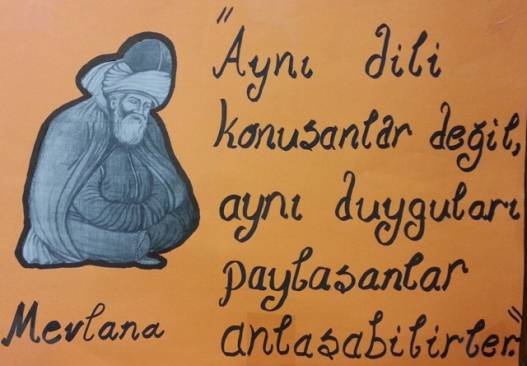 "Aynı dili
konuşanlar değil,
aynı duyguları
paylaşanlar
anlaşabilirler."
Mevlana